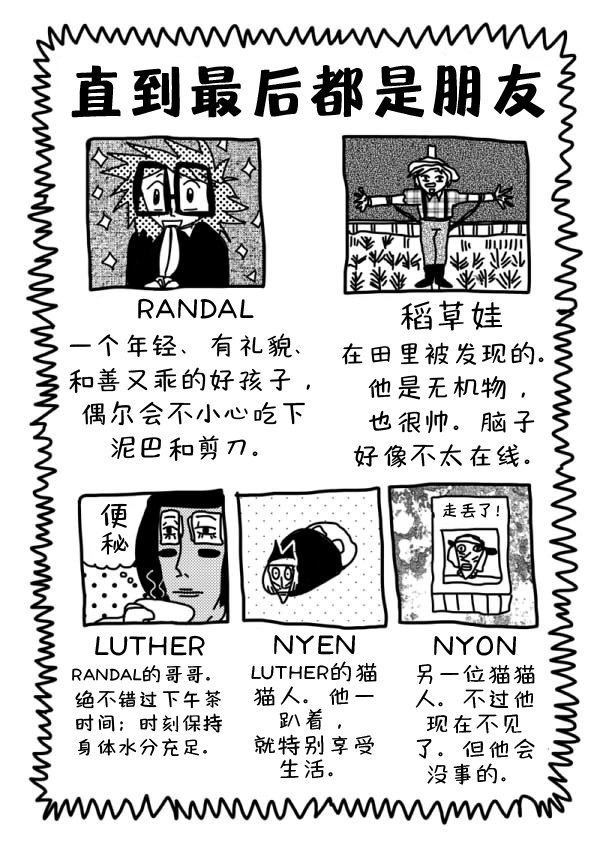 直到最后都是朋友
RANDAL
一个年轻、有礼貌、
和善又乖的好孩子，
偶尔会不小心吃下
泥巴和剪刀。
稻草娃
在田里被发现的。
他是无机物，
也很帅。脑子
好像不太在线。
便
秘
LUTHER
RANDAL的哥哥。
绝不错过下午茶
时间；时刻保持
身体水分充足。
NYEN
LUTHER的猫
猫人。他一
趴着，
就特别享受
生活。
走丢了！
NYON
另一位猫猫
人。不过他
现在不见
了。但他会
没事的。